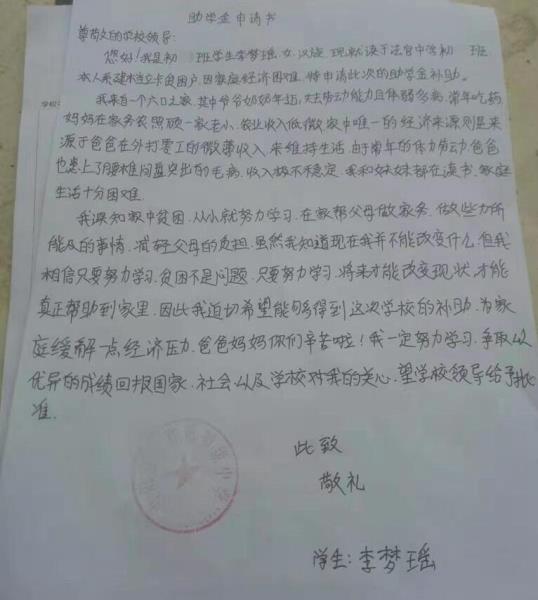 助学金申请书
尊敬的学校领导:
您好!我是初 班学生李梦瑶,女,汉族,现就读于法官中学初 班
本人系建档立卡贫困户,因家庭经济困难,特申请此次的助学金补助。
我来自一个六口之家,其中爷爷奶奶年迈,失去劳动能力且体弱多病,常年吃药
妈妈在家务农照顾一家老小,农业收入低微,家中唯一的经济来源则是来
源于爸爸在外打零工的微薄收入来维持生活,由于常年的体力劳动,爸爸
也患上了腰椎间盘突出的毛病,收入极不稳定,我和妹妹都在读书,家庭
生活十分困难.
我深知家中贫困,从小就努力学习,在家帮父母做家务,做些力所
能及的事情,减轻父母的负担,虽然我知道现在我并不能改变什么,但我
相信只要努力学习,贫困不是问题.只要努力学习,将来才能改变现状,才能
真正帮助到家里,因此我迫切希望能够得到这次学校的补助,为家
庭缓解一点经济压力,爸爸妈妈你们辛苦啦!我一定努力学习,争取以
优异的成绩回报国家、社会以及学校对我的关心,望学校领导给予批
准.
此致
敬礼
学生:李梦瑶